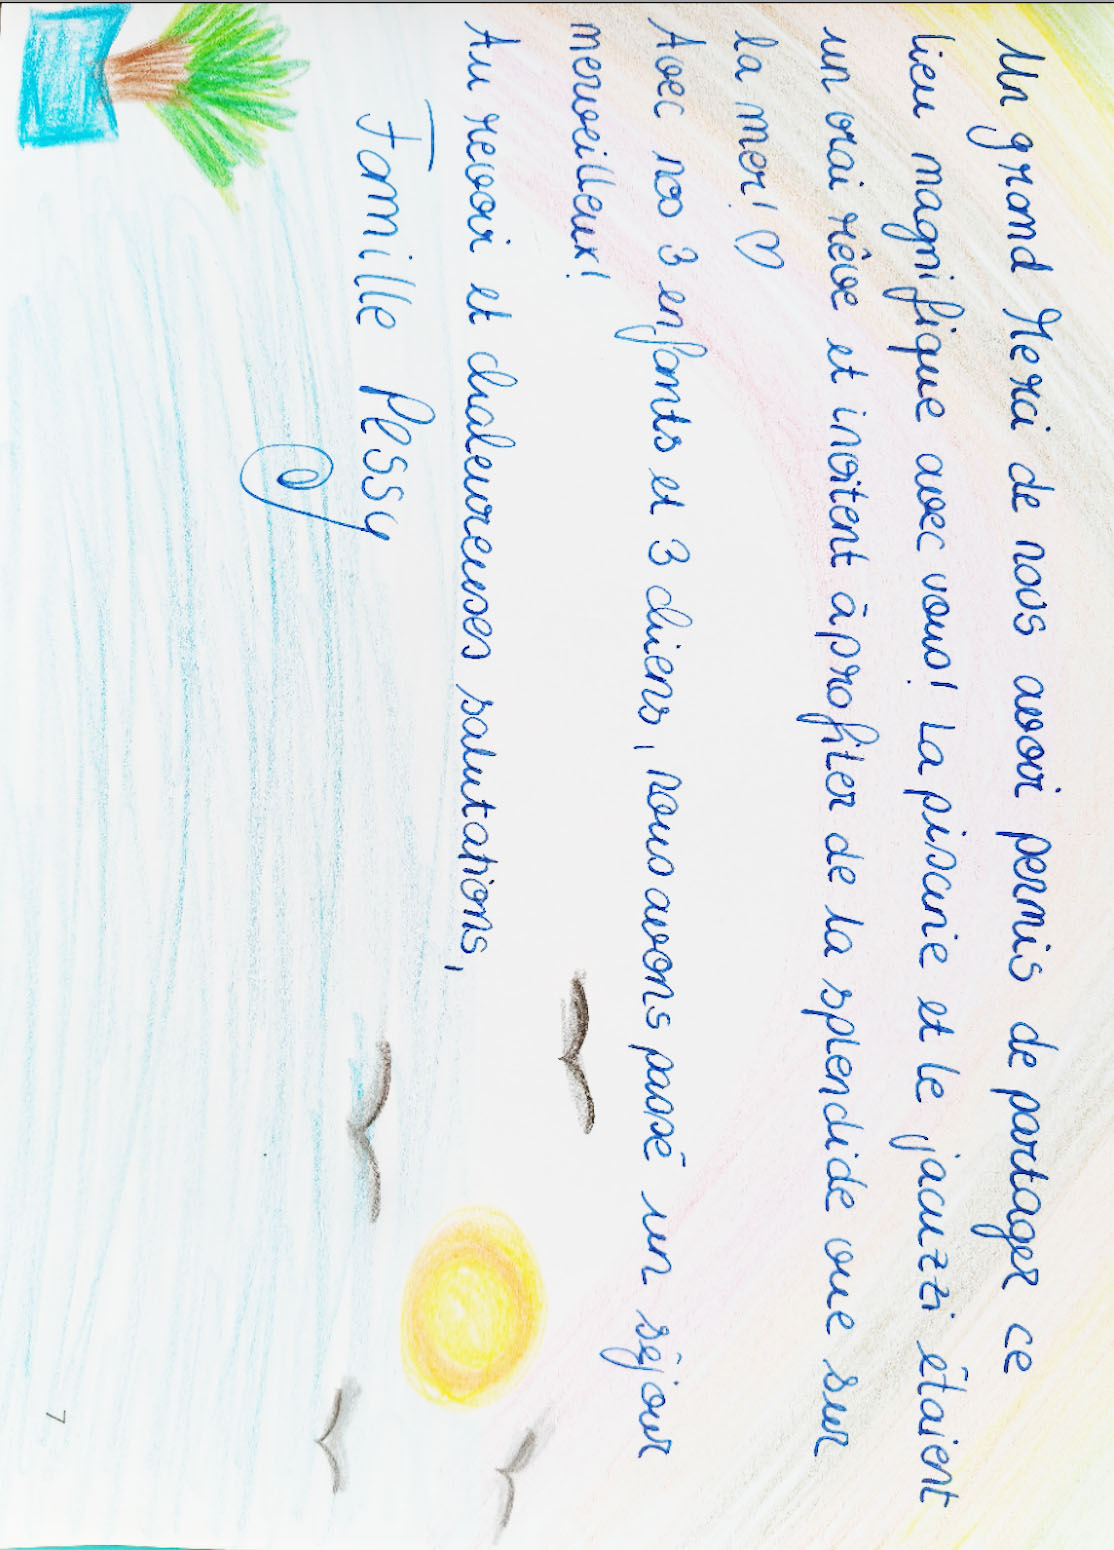 Un grand Merci de nous avoir permis de partager ce
lieu magnifique avec vous! La piscine et le jacuzzi étaient
un vrai rêve et invitent à profiter de la splendide vue sur
la mer! ♡
Avec nos 3 enfants et 3 chiens, nous avons passé un séjour
merveilleux!
Au revoir et chaleureuses salutations,
Famille Pessy
7